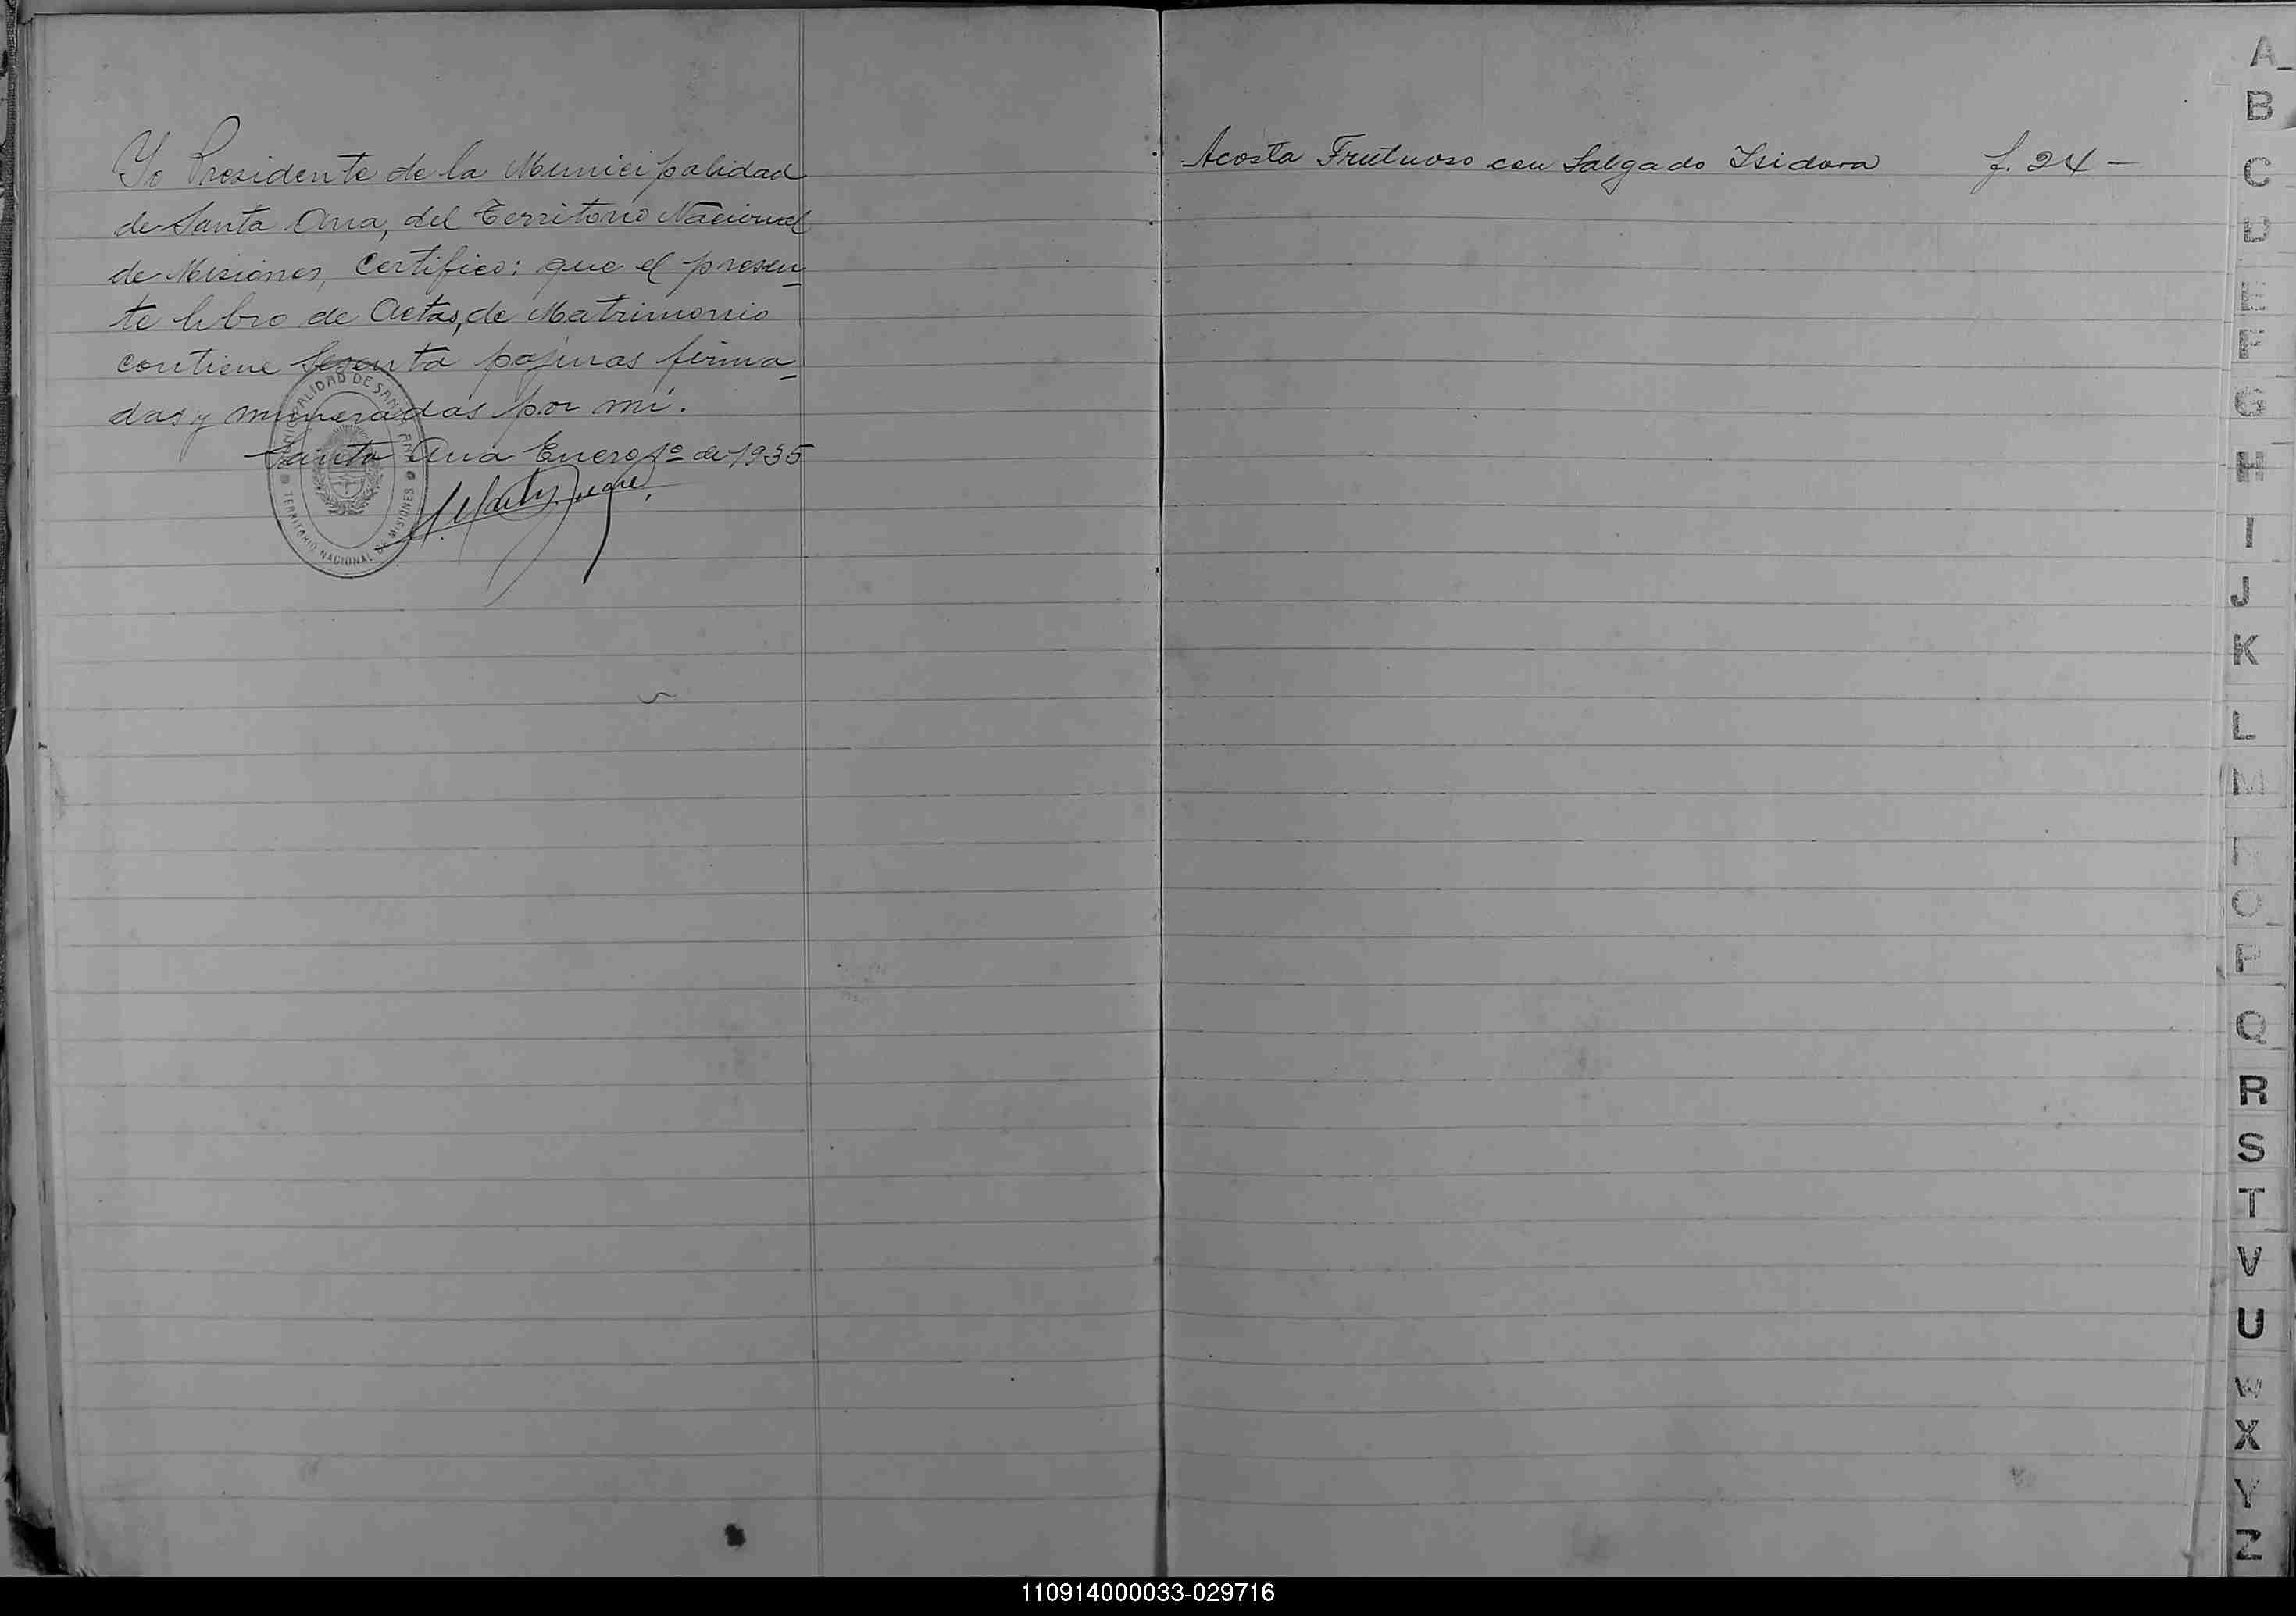 Yo Presidente de la Municipalidad
de Santa Ana, del Territorio Nacional
de Misiones, Certifico: que el presen-
te libro de Actas, de Matrimonio
contiene sesenta pajinas firma-
das y numeradas por mí.
Santa Ana Enero 1º de 1935
MUNICIPALIDAD DE SANTA ANA
TERRITORIO NACIONAL DE MISIONES
Acosta Frutuoso con Salgado Isidora f. 24 -
A
B
C
D
E
F
G
H
I
J
K
L
M
N
O
P
Q
R
S
T
V
U
W
X
Y
Z
110914000033-029716